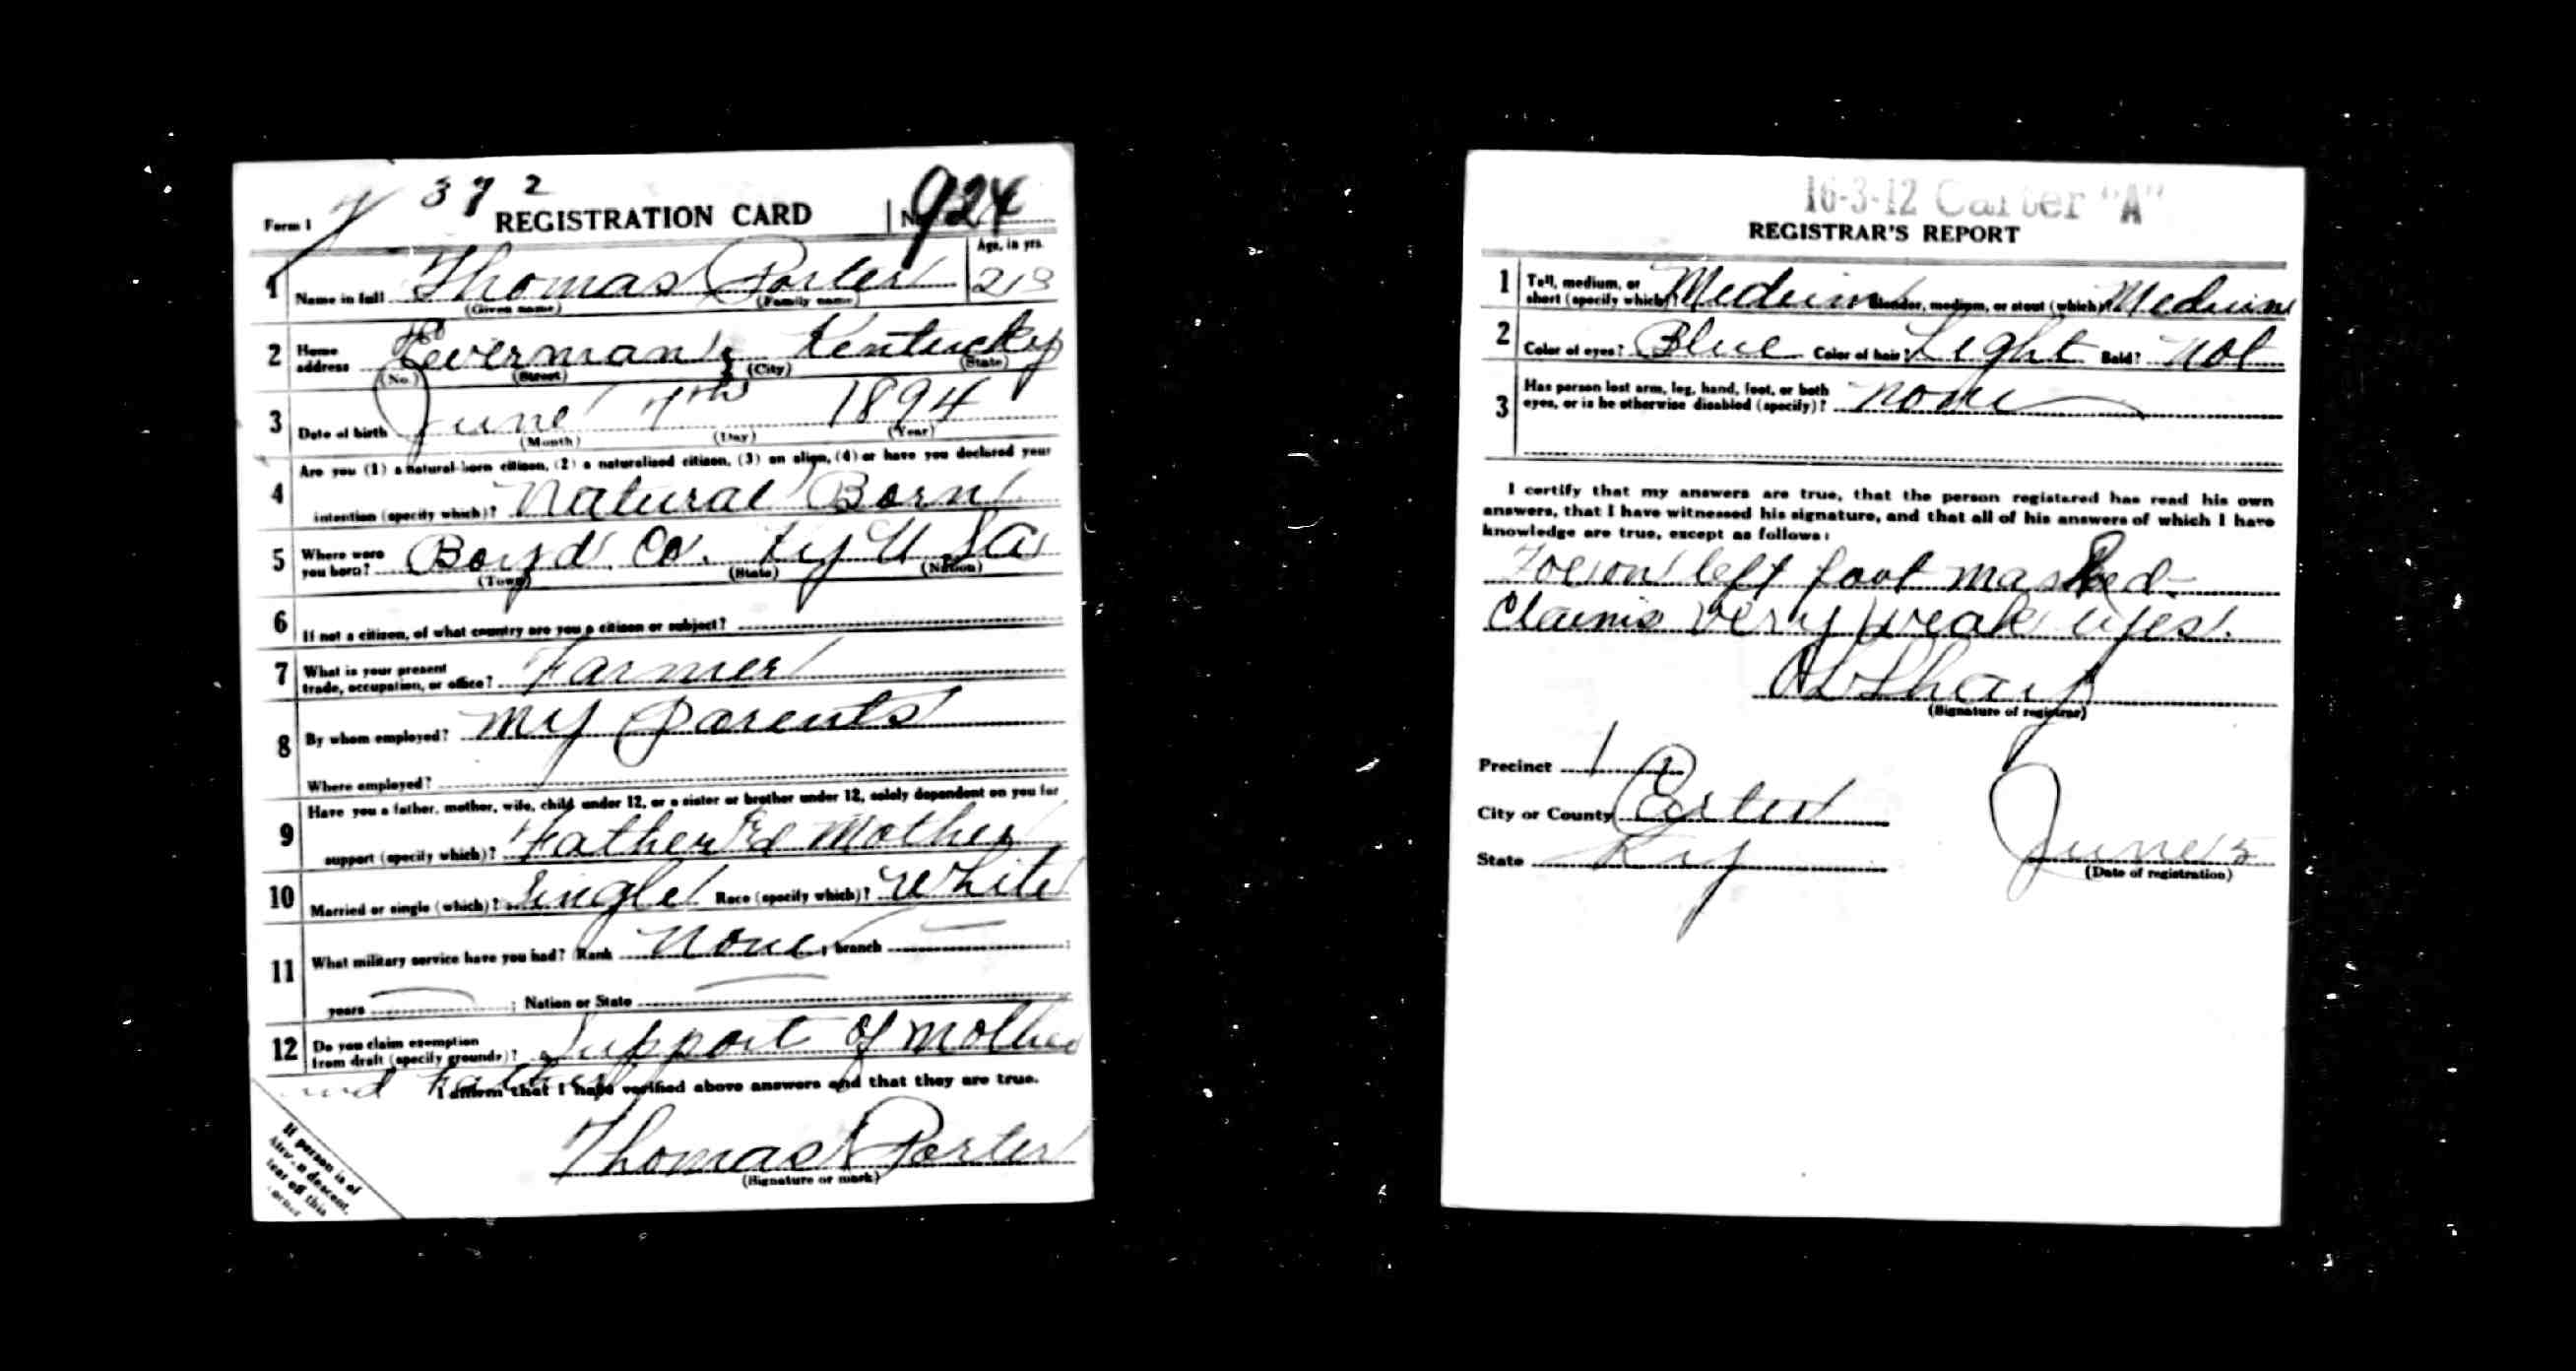 372
924
Form 1 REGISTRATION CARD No.
Age, in yrs.
1 Name in full Thomas Porter
(Given name) (Family name)
2 Home address Everman, Kentucky
(No.) (Street) (City) (State)
3 Date of birth June 7th 1894
(Month) (Day) (Year)
4 Are you (1) a natural-born citizen, (2) a naturalized citizen, (3) an alien, (4) or have you declared your
intention (specify which)? Natural Born
5 Where were you born? Boyd Co. Ky U S A
(Town) (State) (Nation)
6 If not a citizen, of what country are you a citizen or subject?
7 What is your present trade, occupation, or office? Farmer
8 By whom employed? My Parents
Where employed?
9 Have you a father, mother, wife, child under 12, or a sister or brother under 12, solely dependent on you for
support (specify which)? Father & Mother
10 Married or single (which)? Single Race (specify which)? White
11 What military service have you had? Rank None; branch
years ; Nation or State
12 Do you claim exemption from draft (specify grounds)? Support of Mother
and Father
I affirm that I have verified above answers and that they are true.
Thomas Porter
(Signature or mark)
If person is of
African descent,
tear off this
corner
16-3-12 Carter "A"
REGISTRAR'S REPORT
1 Tall, medium, or short (specify which)? Medium Slender, medium, or stout (which)? Medium
2 Color of eyes? Blue Color of hair? Light Bald? Not
3 Has person lost arm, leg, hand, foot, or both
eyes, or is he otherwise disabled (specify)? None
I certify that my answers are true, that the person registered has read his own
answers, that I have witnessed his signature, and that all of his answers of which I have
knowledge are true, except as follows:
Toe on left foot mashed
Claims very weak eyes.
Sharp
(Signature of registrar)
Precinct 1
City or County Carter
State Ky
June 5
(Date of registration)